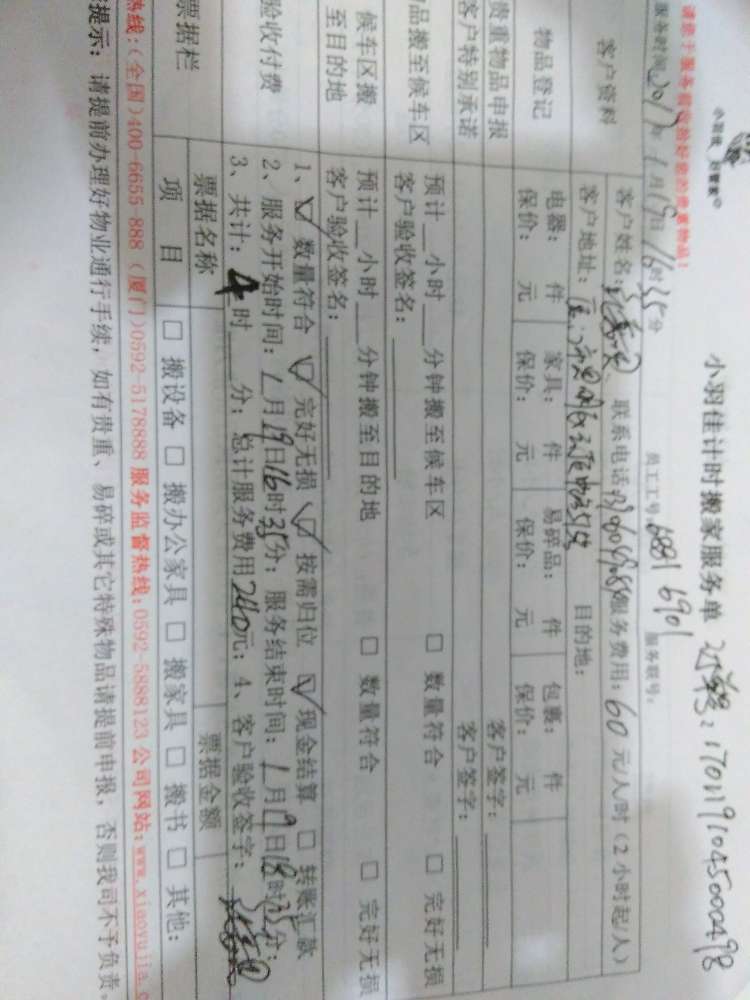 小羽佳计时搬家服务单 订单号：1701191045000498
小羽佳 好管家
请您于服务前收拾好您的贵重物品！
员工工号 6881 6901 服务联号：
服务时间 2017年1月19日16时35分
客户资料
客户姓名： 联系电话 服务费用：60元/人时（2小时起/人）
客户地址： 目的地：
物品登记
电器： 件 家具： 件 易碎品： 件 包裹： 件
保价： 元 保价： 元 保价： 元 保价： 元
贵重物品申报 客户签字：
客户特别承诺 客户签字：
品搬至候车区
预计__小时__分钟搬至候车区 □ 数量符合 □ 完好无损
客户验收签名：
候车区搬至目的地
预计__小时__分钟搬至目的地 □ 数量符合 □ 完好无损
客户验收签名：
验收付费
1、☑ 数量符合 ☑ 完好无损 ☑ 按需归位 ☑ 现金结算 □ 转账汇款
2、服务开始时间：1月19日16时35分；服务结束时间：1月19日18时35分；
3、共计：4时__分；总计服务费用240元；4、客户验收签字：
票据栏
票据名称 票据金额
项 目 □ 搬设备 □ 搬办公家具 □ 搬家具 □ 搬书 □ 其他：
热线：（全国）400-6655-888（厦门）0592-5178888 服务监督热线：0592-5888123 公司网站：www.xiaoyujia.c
提示：请提前办理好物业通行手续，如有贵重、易碎或其它特殊物品请提前申报，否则我司不予负责。